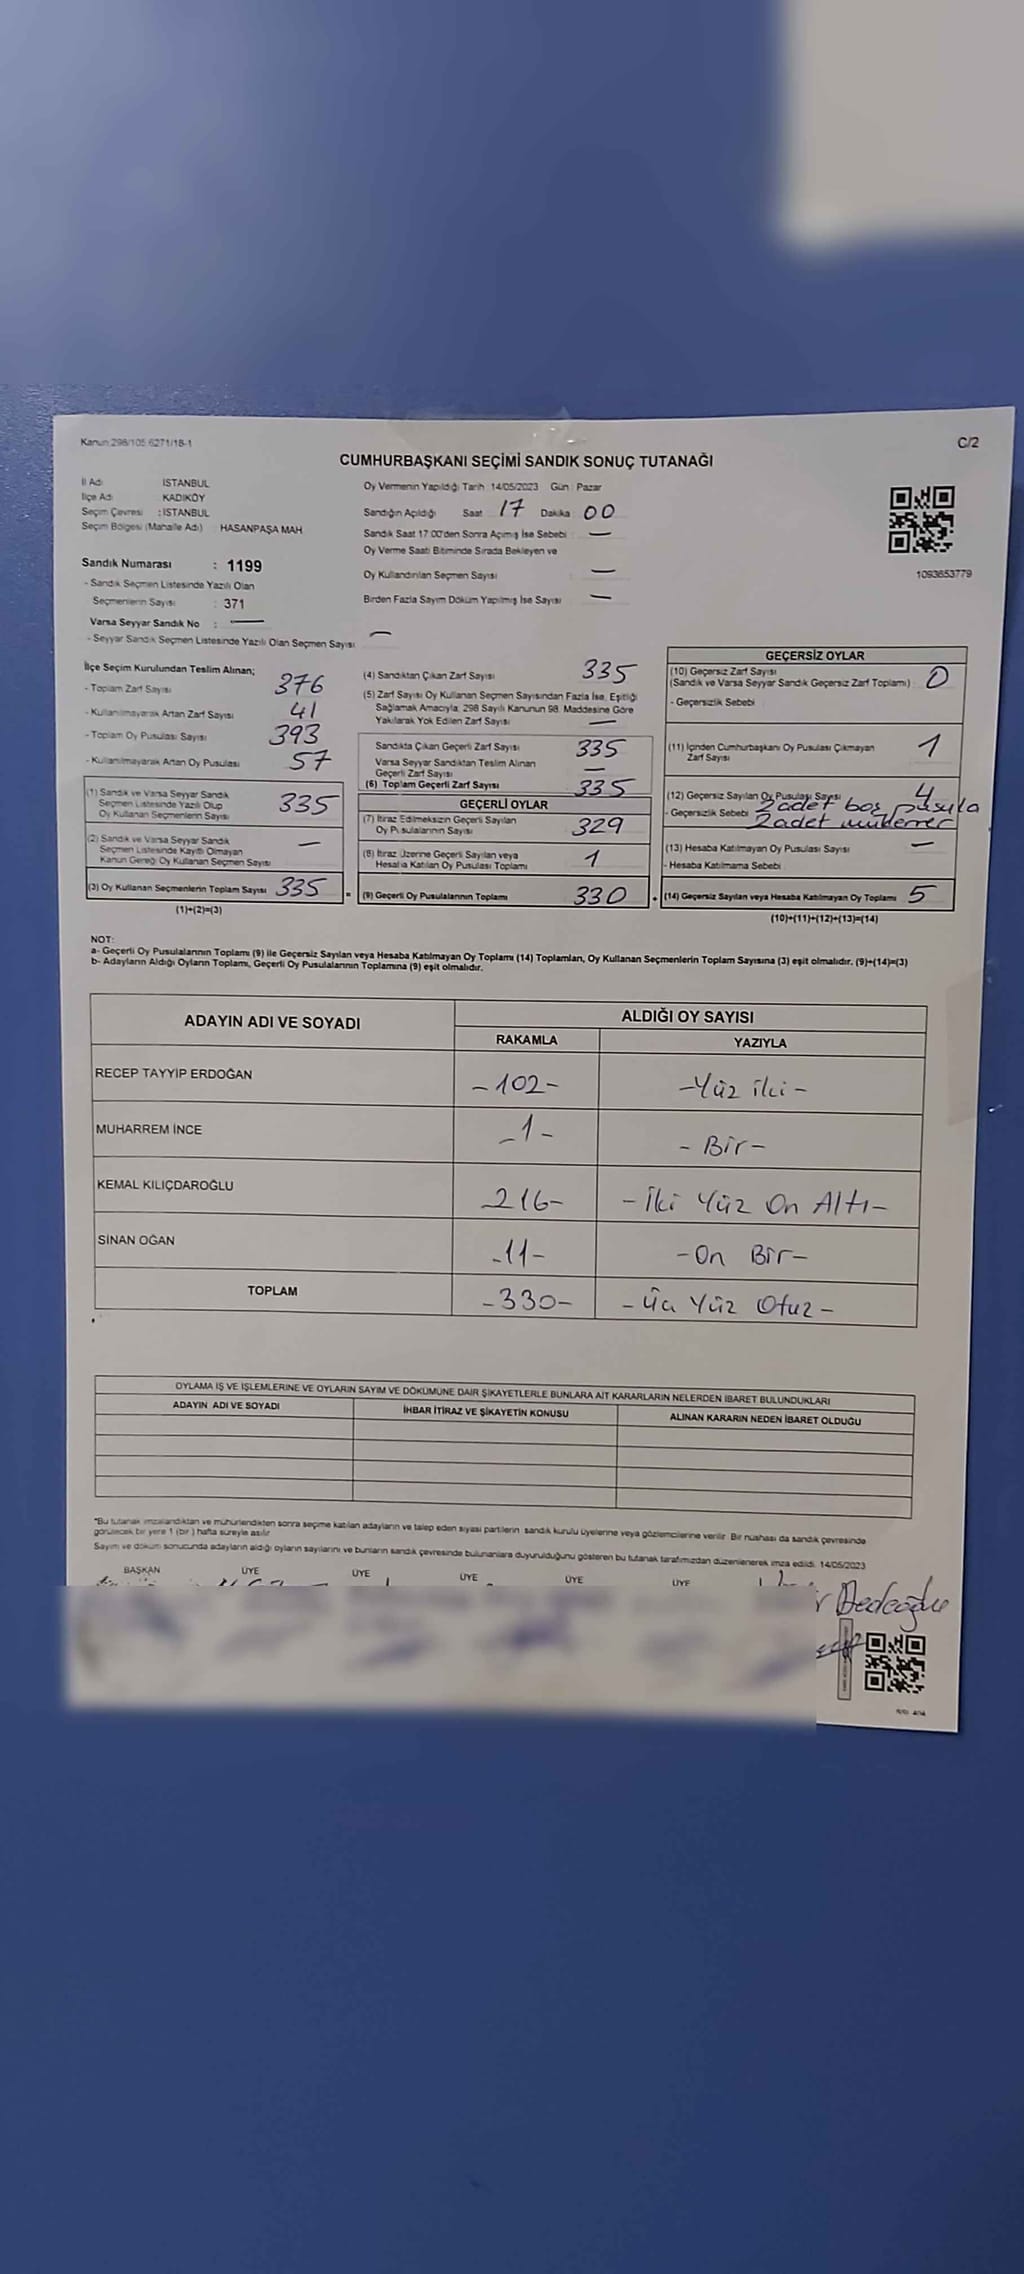 Kanun 298/105 6271/18-1
C/2
CUMHURBAŞKANI SEÇİMİ SANDIK SONUÇ TUTANAĞI
İl Adı İSTANBUL
İlçe Adı KADIKÖY
Seçim Çevresi : İSTANBUL
Seçim Bölgesi (Mahalle Adı) HASANPAŞA MAH
Sandık Numarası : 1199
- Sandık Seçmen Listesinde Yazılı Olan
Seçmenlerin Sayısı : 371
Varsa Seyyar Sandık No : —
- Seyyar Sandık Seçmen Listesinde Yazılı Olan Seçmen Sayısı —
Oy Vermenin Yapıldığı Tarih 14/05/2023 Gün Pazar
Sandığın Açıldığı Saat 17 Dakika 00
Sandık Saat 17:00'den Sonra Açılmış İse Sebebi —
Oy Verme Saati Bitiminde Sırada Bekleyen ve
Oy Kullandırılan Seçmen Sayısı : —
Birden Fazla Sayım Döküm Yapılmış İse Sayısı —
1093653779
İlçe Seçim Kurulundan Teslim Alınan;
- Toplam Zarf Sayısı 376
- Kullanılmayarak Artan Zarf Sayısı 41
- Toplam Oy Pusulası Sayısı 393
- Kullanılmayarak Artan Oy Pusulası 57
(1) Sandık ve Varsa Seyyar Sandık
Seçmen Listesinde Yazılı Olup
Oy Kullanan Seçmenlerin Sayısı 335
(2) Sandık ve Varsa Seyyar Sandık
Seçmen Listesinde Kayıtlı Olmayan
Kanun Gereği Oy Kullanan Seçmen Sayısı —
(3) Oy Kullanan Seçmenlerin Toplam Sayısı 335 =
(1)+(2)=(3)
(4) Sandıktan Çıkan Zarf Sayısı 335
(5) Zarf Sayısı Oy Kullanan Seçmen Sayısından Fazla İse, Eşitliği
Sağlamak Amacıyla; 298 Sayılı Kanunun 98. Maddesine Göre
Yakılarak Yok Edilen Zarf Sayısı —
Sandıkta Çıkan Geçerli Zarf Sayısı 335
Varsa Seyyar Sandıktan Teslim Alınan
Geçerli Zarf Sayısı —
(6) Toplam Geçerli Zarf Sayısı 335
GEÇERLİ OYLAR
(7) İtiraz Edilmeksizin Geçerli Sayılan
Oy Pusulalarının Sayısı 329
(8) İtiraz Üzerine Geçerli Sayılan veya
Hesaba Katılan Oy Pusulası Toplamı 1
(9) Geçerli Oy Pusulalarının Toplamı 330 +
GEÇERSİZ OYLAR
(10) Geçersiz Zarf Sayısı
(Sandık ve Varsa Seyyar Sandık Geçersiz Zarf Toplamı) : 0
- Geçersizlik Sebebi
(11) İçinden Cumhurbaşkanı Oy Pusulası Çıkmayan
Zarf Sayısı 1
(12) Geçersiz Sayılan Oy Pusulası Sayısı 4
- Geçersizlik Sebebi 2 adet boş pusula
2 adet mükerrer
(13) Hesaba Katılmayan Oy Pusulası Sayısı —
- Hesaba Katılmama Sebebi
(14) Geçersiz Sayılan veya Hesaba Katılmayan Oy Toplamı 5
(10)+(11)+(12)+(13)=(14)
NOT:
a- Geçerli Oy Pusulalarının Toplamı (9) ile Geçersiz Sayılan veya Hesaba Katılmayan Oy Toplamı (14) Toplamları, Oy Kullanan Seçmenlerin Toplam Sayısına (3) eşit olmalıdır. (9)+(14)=(3)
b- Adayların Aldığı Oyların Toplamı, Geçerli Oy Pusulalarının Toplamına (9) eşit olmalıdır.
ADAYIN ADI VE SOYADI ALDIĞI OY SAYISI
RAKAMLA YAZIYLA
RECEP TAYYİP ERDOĞAN -102- -Yüz iki-
MUHARREM İNCE -1- - Bir-
KEMAL KILIÇDAROĞLU -216- -İki Yüz On Altı-
SİNAN OĞAN -11- -On Bir-
TOPLAM -330- -Üç Yüz Otuz-
OYLAMA İŞ VE İŞLEMLERİNE VE OYLARIN SAYIM VE DÖKÜMÜNE DAİR ŞİKAYETLERLE BUNLARA AİT KARARLARIN NELERDEN İBARET BULUNDUKLARI
ADAYIN ADI VE SOYADI İHBAR İTİRAZ VE ŞİKAYETİN KONUSU ALINAN KARARIN NEDEN İBARET OLDUĞU
"Bu tutanak imzalandıktan ve mühürlendikten sonra seçime katılan adayların ve talep eden siyasi partilerin sandık kurulu üyelerine veya gözlemcilerine verilir. Bir nüshası da sandık çevresinde
görülecek bir yere 1 (bir) hafta süreyle asılır
Sayım ve döküm sonucunda adayların aldığı oyların sayılarını ve bunların sandık çevresinde bulunanlara duyurulduğunu gösteren bu tutanak tarafımızdan düzenlenerek imza edildi. 14/05/2023
BAŞKAN ÜYE ÜYE ÜYE ÜYE ÜYE
Dedeoğlu